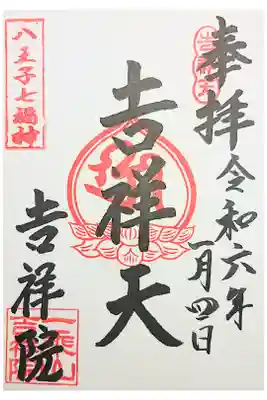 奉拝
令和六年
一月四日
吉祥天
八王子七福神
吉祥院